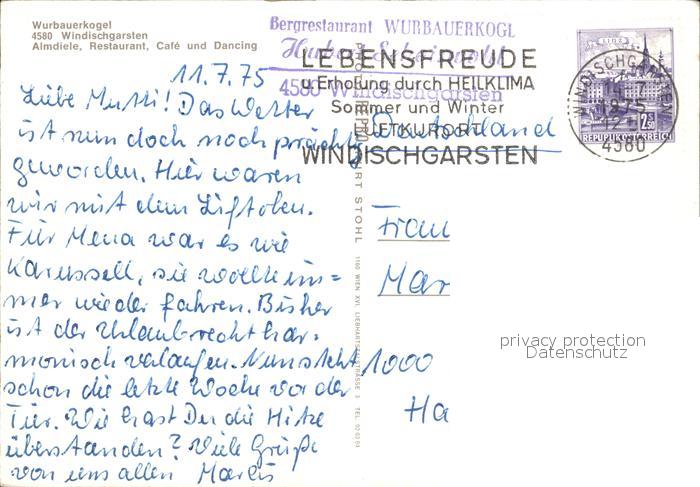 Wurbauerkogel
4580 Windischgarsten
Almdiele, Restaurant, Café und Dancing
Bergrestaurant WURBAUERKOGL
4580 Windischgarsten
LEBENSFREUDE
u. Erholung durch HEILKLIMA
Sommer und Winter
LUFTKURORT
WINDISCHGARSTEN
WINDISCHGARSTEN
1975
4580
2.50
REPUBLIK ÖSTERREICH
11.7.75
Liebe Mutti! Das Wetter
ist nun doch noch prächtig
geworden. Hier waren
wir mit dem Lift oben.
Für Mena war es wie
Karussell, sie wollte im=
mer wieder fahren. Bisher
ist der Urlaub recht har=
monisch verlaufen. Nun steht
schon die letzte Woche vor der
Tür. Wie hast Du die Hitze
überstanden? Viele Grüße
von uns allen Marlis
Deutschland
Frau
Mar
1000
Ha
KURT STOHL
1160 WIEN XVI, LIEBHARTSTALSTRASSE 3 TEL.
privacy protection
Datenschutz